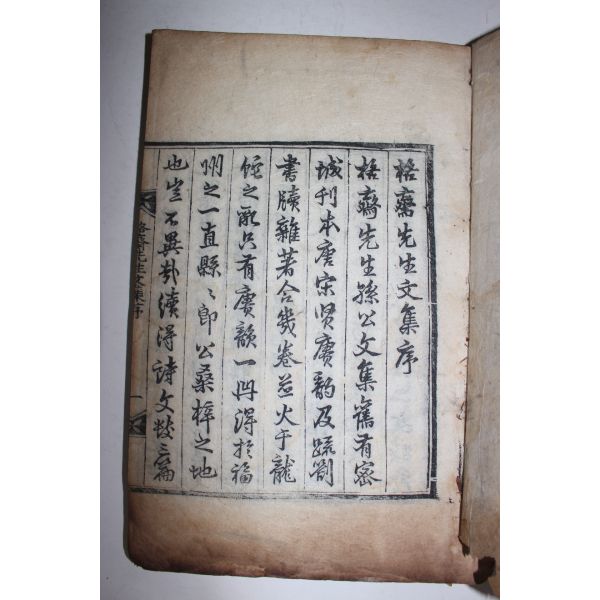 格齋先生文集序
格齋先生孫公文集舊有密
城刊本唐宋賢賡韵及疏劄
書牘雜著合幾卷並火于龍
蛇之亂只有賡韻一冊得於福
州之一直縣〻卽公桑梓之地
也豈不異哉續得詩文數三篇
格齋先生文集序 一